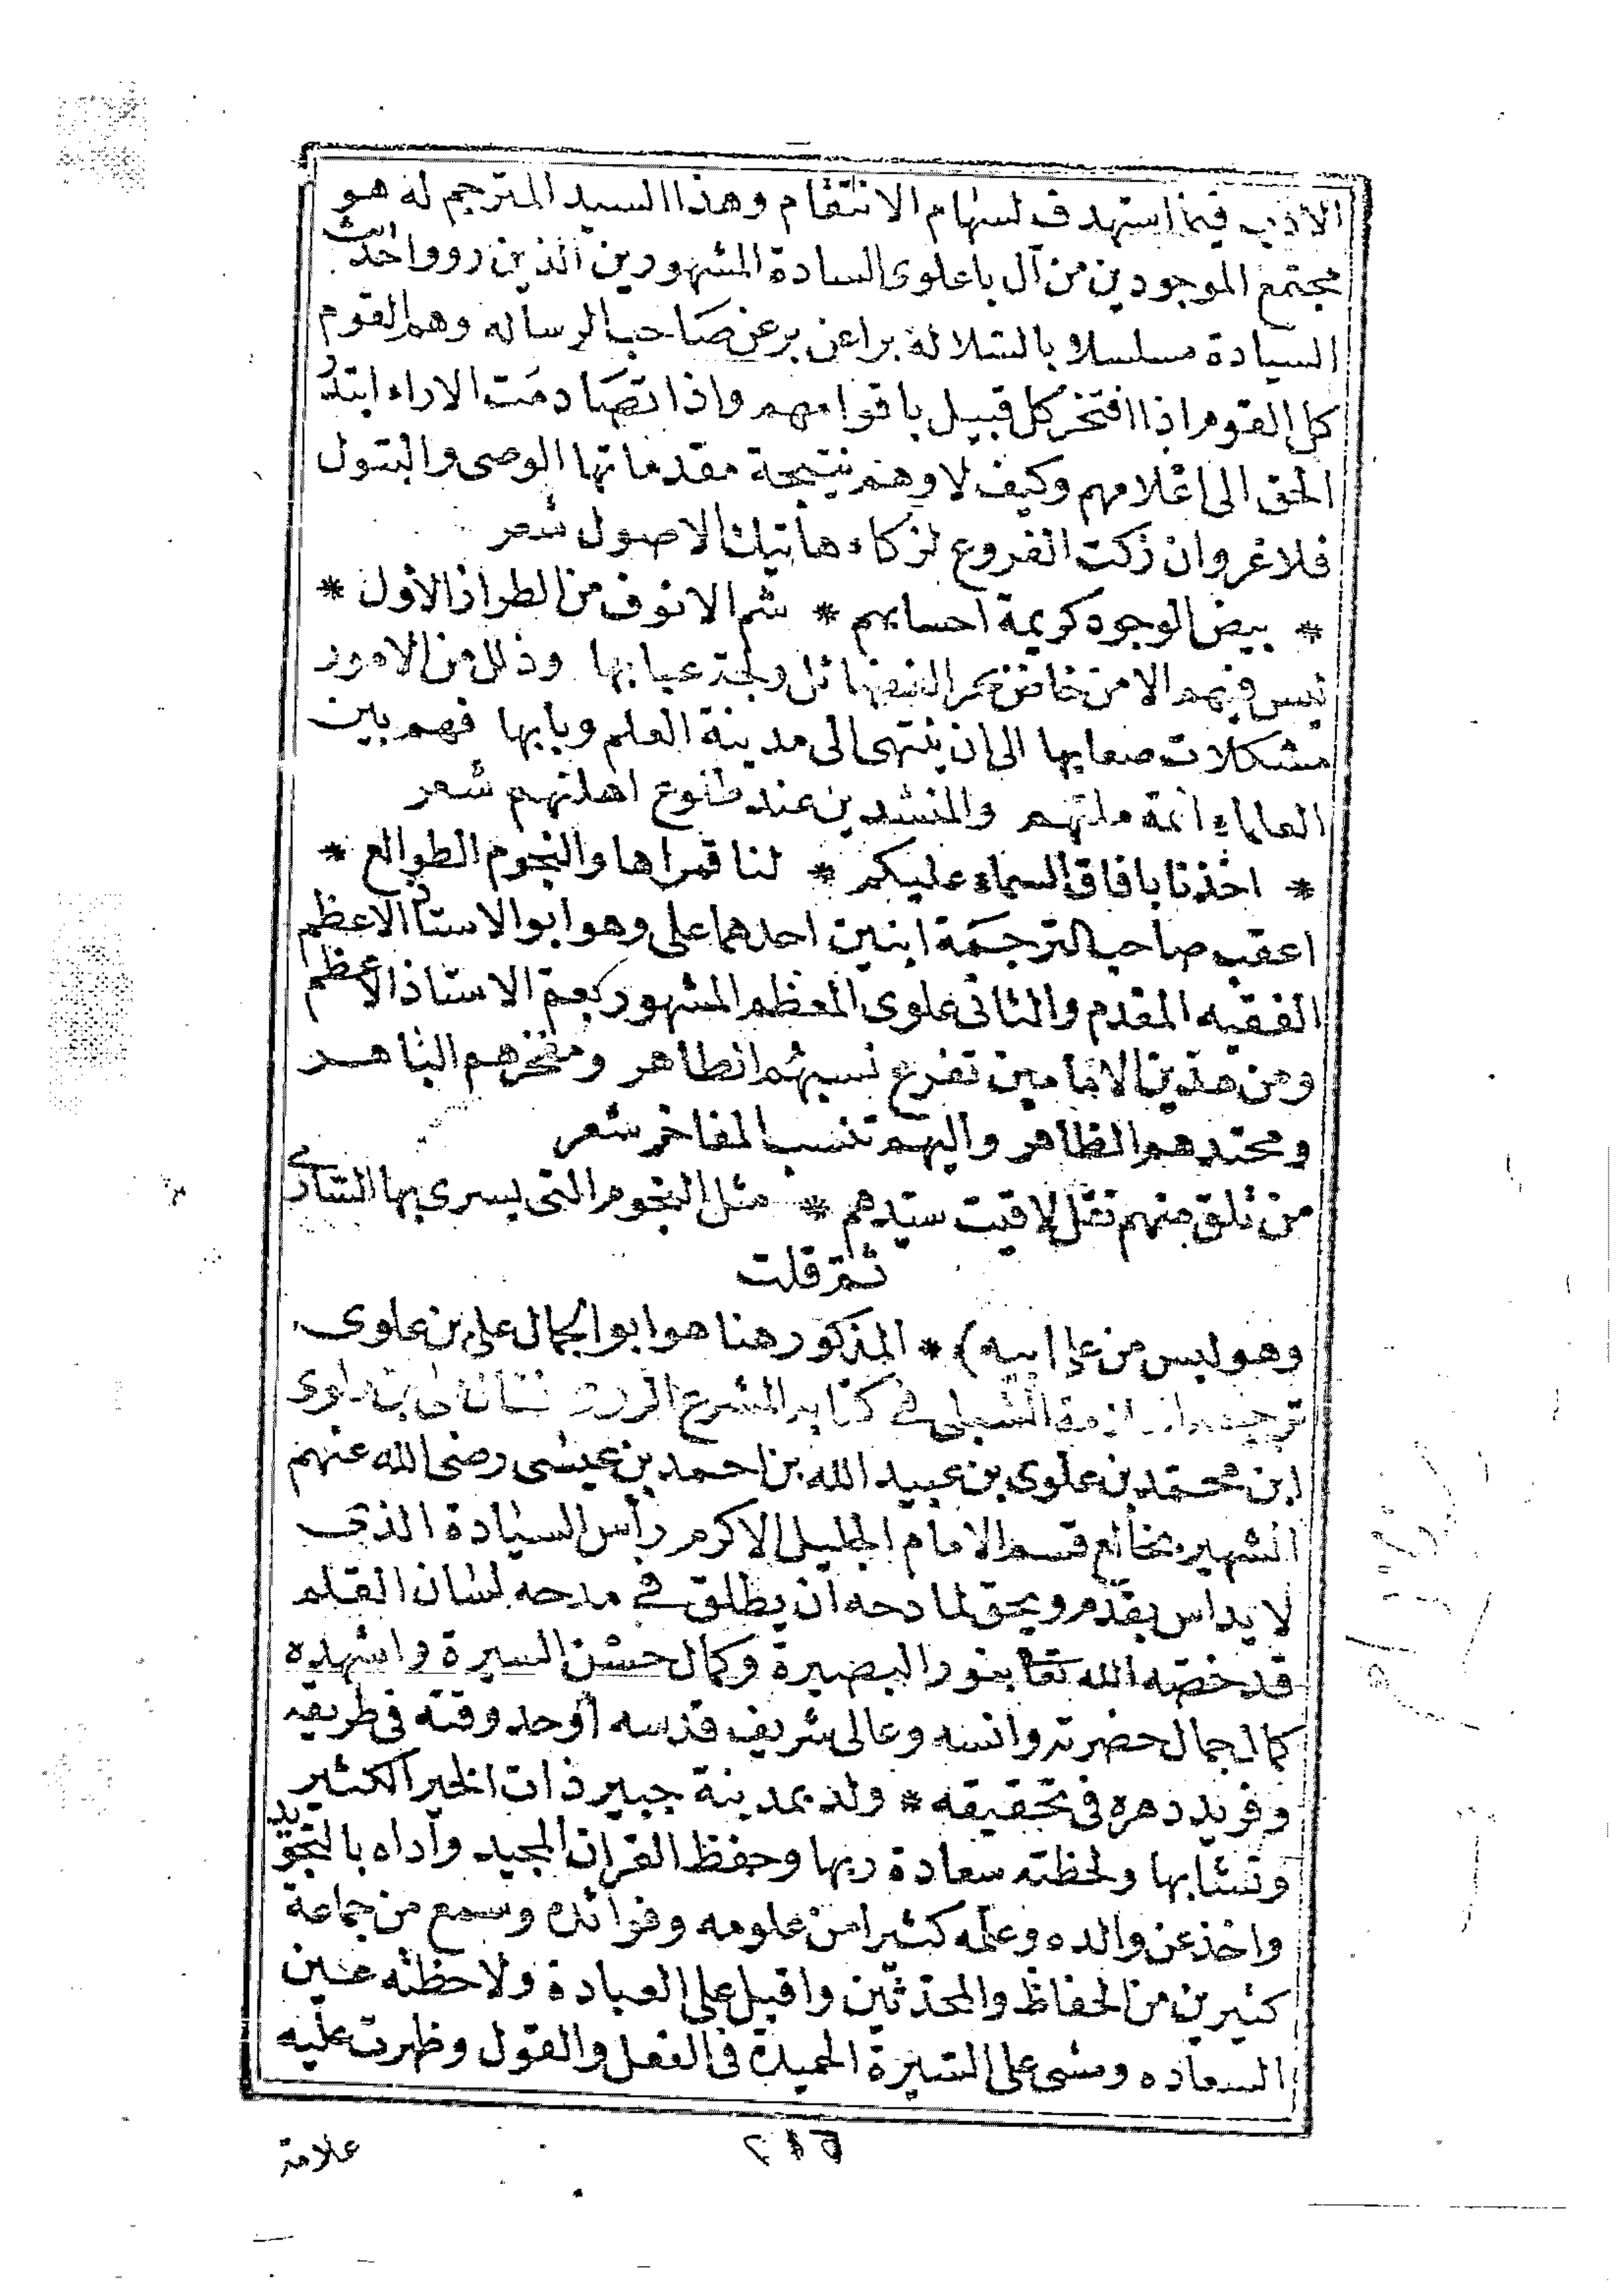 الادب فيما استهدف لسهام الانتقام وهذا السيد المترجم له هو
مجتمع الموجودين من آل باعلوى السادة المشهورين الذين رووا احاديث
السيادة مسلسلا بالسلالة براعن برعن صاحب الرساله وهم القوم
كل القوم اذا افتخر كل قبيل باقوامهم واذا تصادمت الاراء
الحق الى اعلامهم وكيف لا وهم نتيجة مقدماتها الوصى والبتول
فلا غروان زكت الفروع لزكاء هاتيك الاصول شعر
* بيض الوجوه كريمة احسابهم * شم الانوف من الطراز الأول *
ليس فيهم الا من خاض بحر الفضائل ولجة عبابها وذلل من الامور
مشكلات صعابها الى ان ينتهى الى مدينة العلم وبابها فهم بين
العلماء ائمة ملتهم والمنشدين عند طلوع اهلتهم شعر
* اخذنا بافاق السماء عليكم * لنا قمراها والنجوم الطوالع *
اعقب صاحب الترجمة ابنين احدهما على وهو ابو الاستاذ الاعظم
الفقيه المقدم والثانى علوى المعظم المشهور بعم الاستاذ الاعظم
ومن هذين الامامين تفرع نسبهم الطاهر ومفخرهم الباهر
ومحتدهم الظاهر واليهم تنسب المفاخر شعر
من تلق منهم تقل لاقيت سيدهم * مثل النجوم التى يسرى بها السارى
ثم قلت
وهو ليس من على ابيه) * المذكور هنا هو ابو الجمال على بن علوى
ترجمه الشبلى فى كتابه المشرع الروى
ابن محمد بن علوى بن عبيد الله بن احمد بن عيسى رضى الله عنهم
الشهير بخالع قسم الامام الجليل الاكرم رأس السيادة الذى
لا يداس بقدم ويحق لمادحه ان يطلق فى مدحه لسان القلم
قد خصه الله تعا بنور البصيرة وكمال حسن السيرة واشهده
كمال جمال حضرته وانسه وعالى شريف قدسه أوحد وقته فى طريقه
وفريد دهره فى تحقيقه * ولد بمدينة جبير ذات الخير الكثير
ونشا بها ولحظته سعادة ربها وحفظ القران المجيد وأداه بالتجويد
واخذ عن والده وعلمه كثيرا من علومه وفوائده وسمع من جماعة
كثيرين من الحفاظ والمحدثين واقبل على العبادة ولاحظته عين
السعاده ومشى على السيرة الحميدة فى الفعل والقول وظهرت عليه
علامة